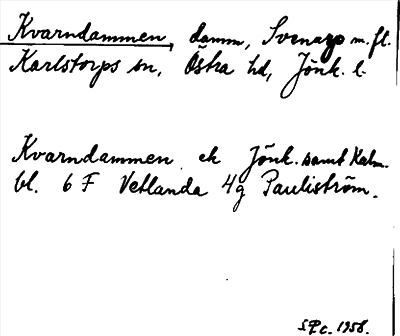 Kvarndammen, damm, Svenarp m.fl.
Karlstorps sn, Östra hd, Jönk. l.
Kvarndammen ek Jönk. samt Kalm.
bl. 6 F Vetlanda 4g Pauliström.
1958.